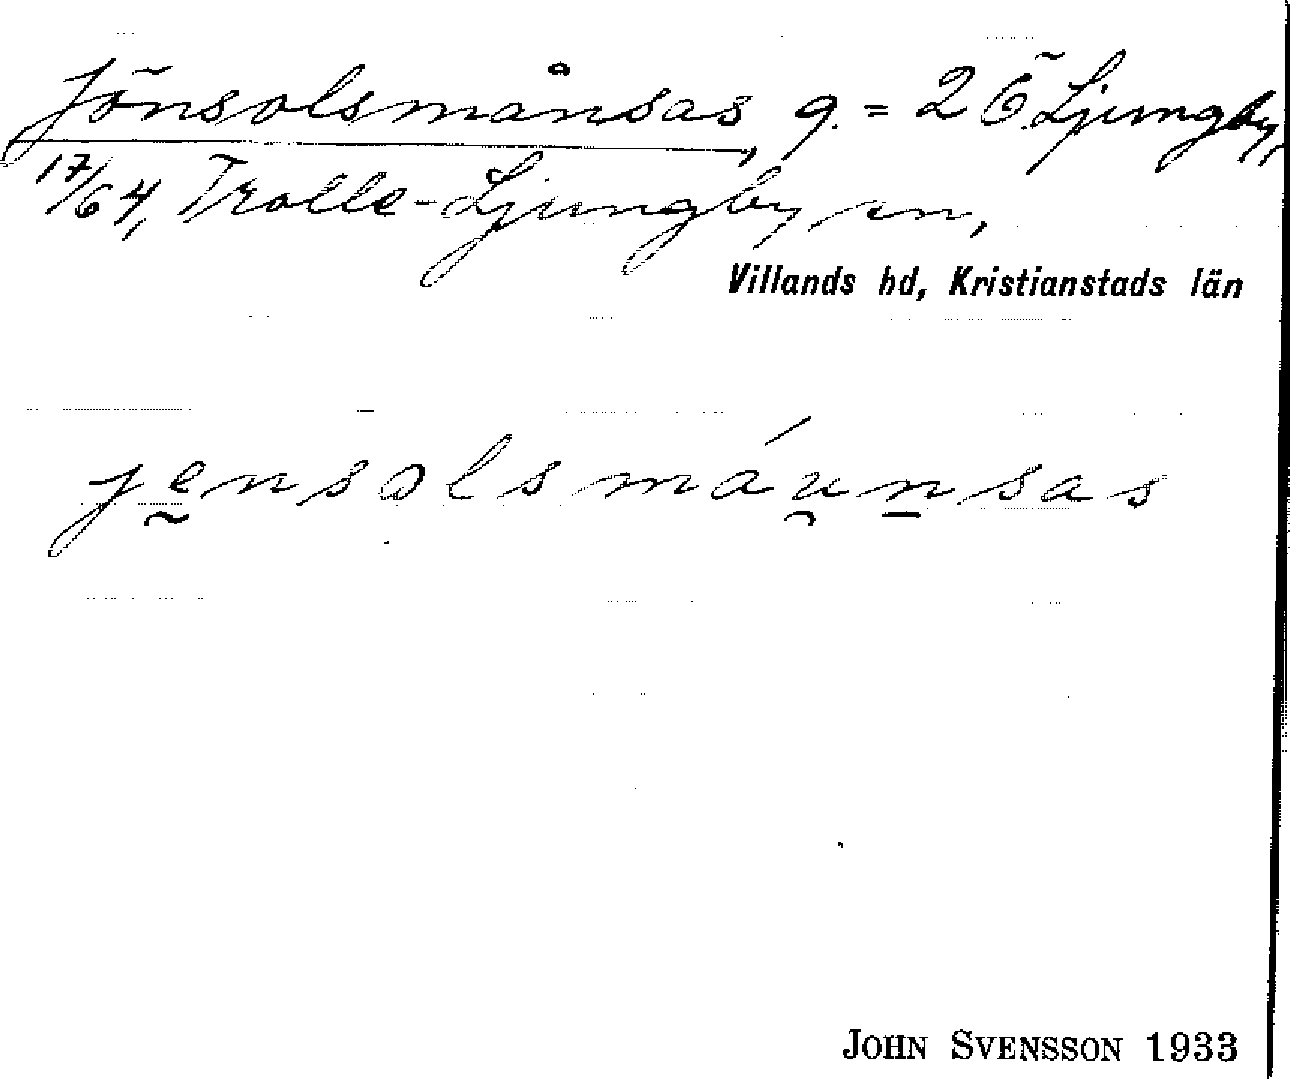 Jönsolsmånsas, g. = 2 Ö. Ljungby,
17/64, Trolle-Ljungby sn,
Villands hd, Kristianstads län
jensolsmáunsas
JOHN SVENSSON 1933